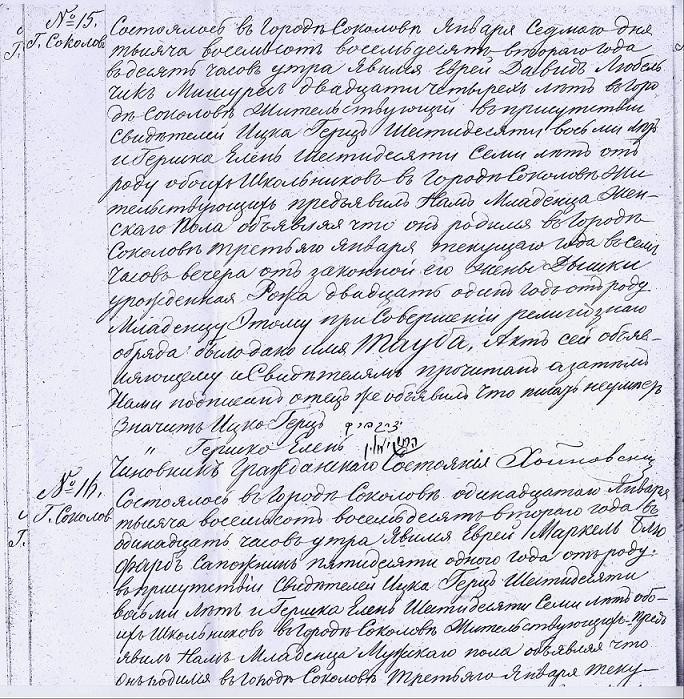 № 15.
Г. Соколов
Состоялось въ Городѣ Соколовѣ Января Седмаго дня
тысяча восемьсотъ восемьдесятъ втораго года
въ десять часовъ утра Явился Еврей Давидъ Любель
чикъ двадцати четырехъ лѣтъ въ Горо
дѣ Соколовѣ Жительствующій въ присутствіи
Свидѣтелей Ицка Герцъ Шестидесяти восьми лѣтъ
и Гершка Елень Шестидесяти Семи лѣтъ отъ
роду обоихъ Школьниковъ въ Городѣ Соколовѣ Жи
тельствующихъ предъявилъ Намъ Младенца Жен-
скаго Пола объявляя что онъ родился въ Городѣ
Соколовѣ третьяго Января текущаго года въ семь
часовъ вечера отъ законной его Жены Дышки
урожденная Рожа двадцать одинъ годъ отъ роду.
Младенцу Этому при Совершеніи религіознаго
обряда было дано имя Тауба, Актъ сей объяв-
ляющему и Свидѣтелямъ прочитанъ а затѣмъ
Нами подписанъ отецъ же объявилъ что писать неумѣетъ
Значитъ Ицко Герцъ
„ Гершко Елень
Чиновникъ Гражданскаго Состоянія
№ 16.
Г. Соколов
Состоялось въ Городѣ Соколовѣ одинадцатаго Января
тысяча восемьсотъ восемьдесятъ втораго года въ
одинадцать часовъ утра Явился Еврей Маркель Блю
фарбъ Сапожникъ пятидесяти одного года отъ роду.
въ присутствіи Свидѣтелей Ицка Герцъ Шестидесяти
восьми лѣтъ и Гершка Елень Шестидесяти Семи лѣтъ обо-
ихъ Школьниковъ въ Городѣ Соколовѣ Жительствующихъ пред
явилъ Намъ Младенца Мужскаго пола объявляя что
онъ родился въ Городѣ Соколовѣ третьяго Января теку-